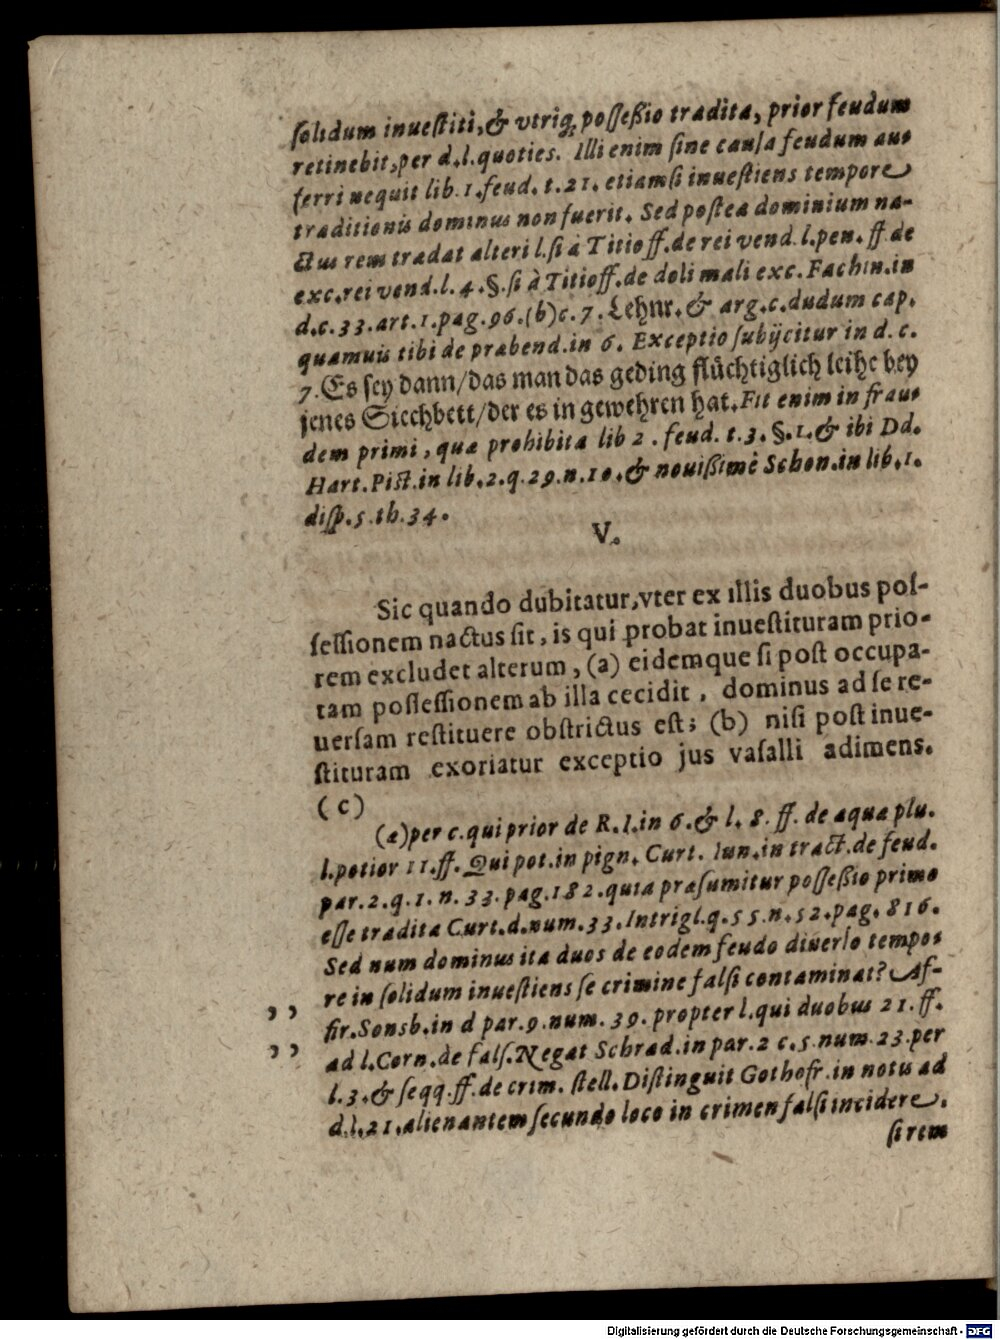 ſolidum inueſtiti, & vtriq; poſſeßio tradita, prior feudum
retinebit, per d. l. quoties. Illi enim ſine cauſa feudum au-
ferri nequit lib. 1. feud. t. 21. etiamſi inueſtiens tempore
traditionis dominus non fuerit. Sed poſtea dominium na-
ctus rem tradat alteri l. ſi à Titio ff. de rei vend. l. pen. ff de
exc. rei vend. l. 4. §. ſi à Titio ff. de doli mali exc. Fachin. in
d. c. 33. art. 1. pag. 96. (b) c. 7. Lehnr. & arg. c. dudum cap.
quamuis tibi de præbend. in 6. Exceptio ſubijcitur in d. c.
7. Es ſey dann/ das man das geding flüchtiglich leihe bey
jenes Siechbett/ der es in gewehren hat. Fit enim in frau-
dem primi, quæ prohibita lib 2. feud. t. 3. §. 1. & ibi Dd.
Hart. Piſt. in lib. 2. q. 29. n. 10. & nouißimè Schon. in lib. 1.
diſp. 5. th. 34.
V.
Sic quando dubitatur, vter ex illis duobus poſ-
ſeſſionem nactus ſit, is qui probat inueſtituram prio-
rem excludet alterum, (a) eidemque ſi poſt occupa-
tam poſſeſſionem ab illa cecidit, dominus ad ſe re-
uerſam reſtituere obſtrictus eſt; (b) niſi poſt inue-
ſtituram exoriatur exceptio jus vaſalli adimens.
(c)
(a) per c. qui prior de R. I. in 6. & l. 8. ff. de aqua plu.
l. potior 11. ff. Qui pot. in pign. Curt. Iun. in tract. de feud.
par. 2. q. 1. n. 33. pag. 182. quia præſumitur poſſeßio primo
eſſe tradita Curt. d. num. 33. Intrigl. q. 55. n. 52. pag. 816.
Sed num dominus ita duos de eodem feudo diuerſo tempo-
re in ſolidum inueſtiens ſe crimine falſi contaminat? Af-
,, fir. Sonsb. in d par. 9. num. 39. propter l. qui duobus 21. ff.
,, ad l. Corn. de falſ. Negat Schrad. in par. 2 c. 5. num. 23. per
l. 3. & ſeqq. ff. de crim. ſtell. Diſtinguit Gothofr. in notis ad
d. l. 21. alienantem ſecundo loco in crimen falſi incidere,
ſi rem
Digitalisierung gefördert durch die Deutsche Forschungsgemeinschaft - DFG